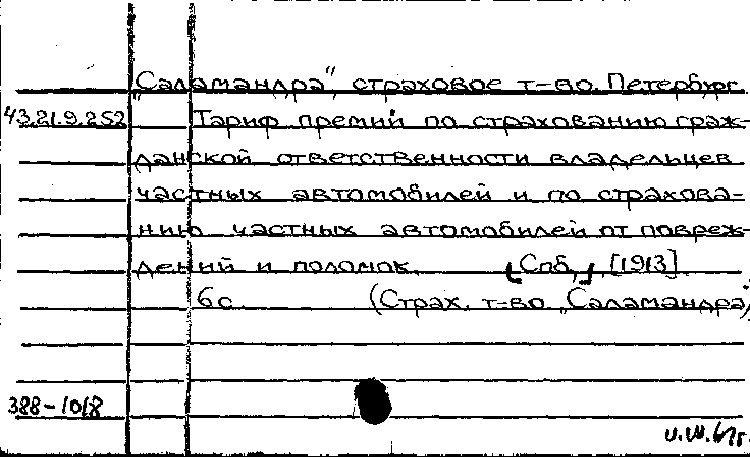 „Саламандра", страховое т-во. Петербург.
43.21.9.252 Тариф премий по страхованию граж-
данской ответственности владельцев
частных автомобилей и по страхова-
нию частных автомобилей от повреж-
дений и поломок. [Спб,], [1913].
6с. (Страх. т-во „Саламандра")
388-1018